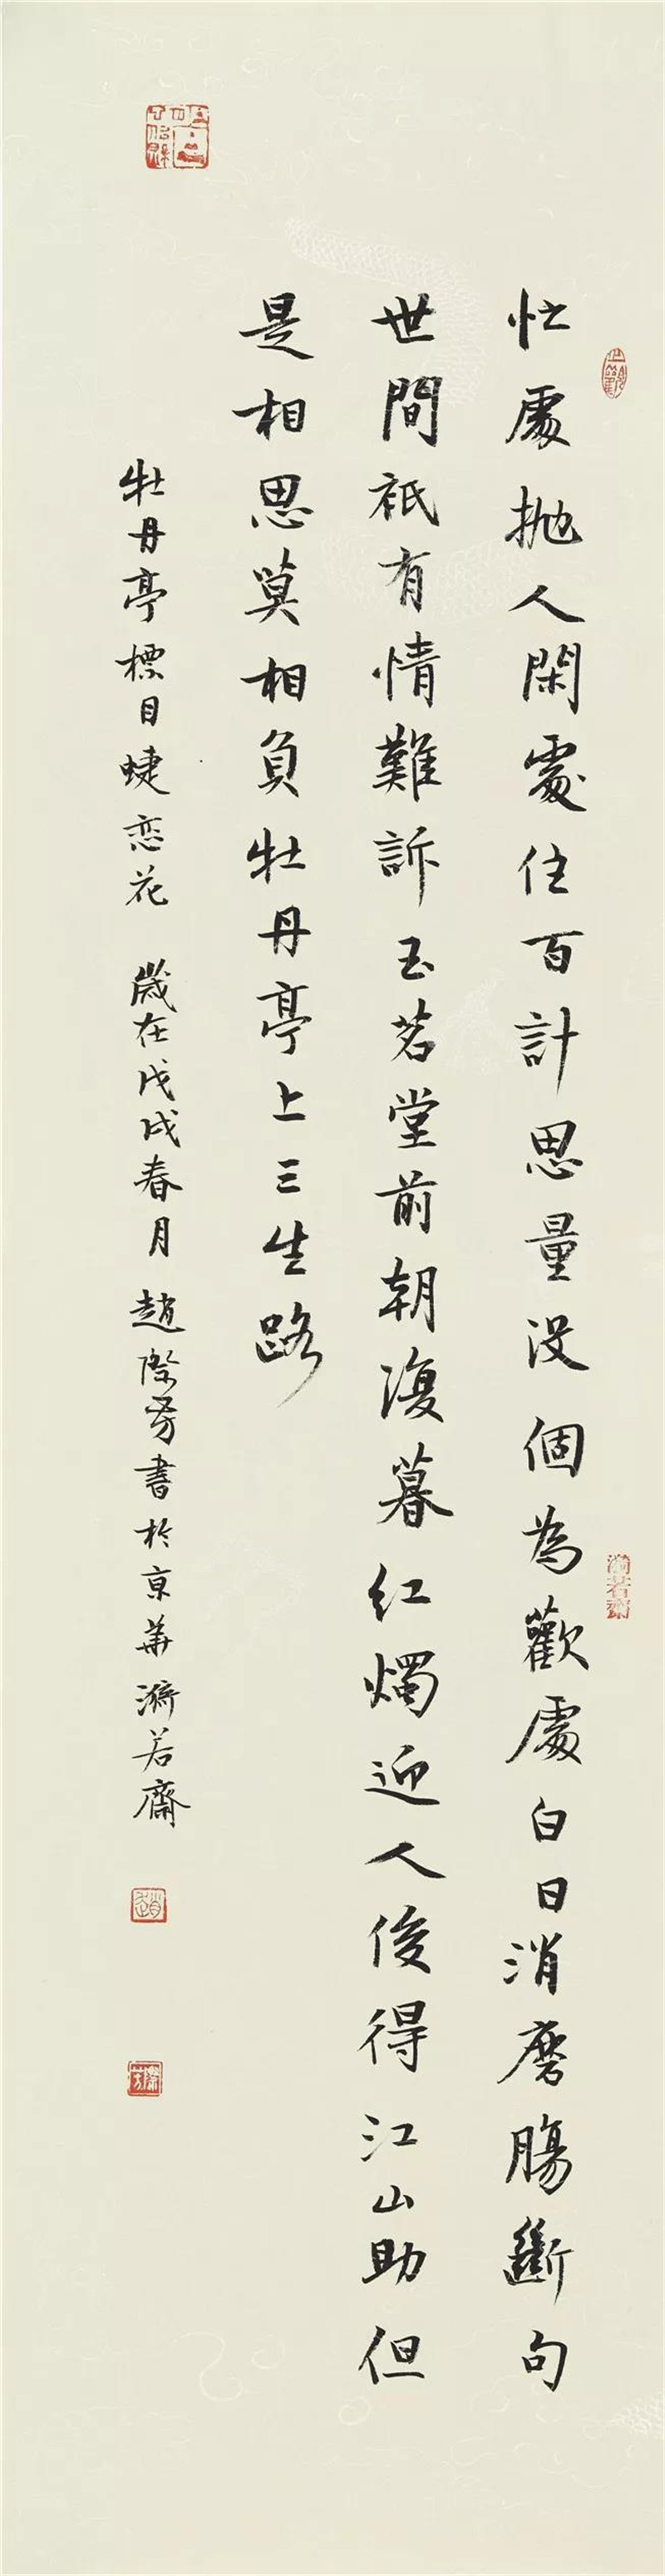 忙處拋人閑處住百計思量沒個為歡處白日消磨腸斷句
世間祇有情難訴玉茗堂前朝復暮紅燭迎人俊得江山助但
是相思莫相負牡丹亭上三生路
牡丹亭標目蜨恋花 歲在戊戌春月趙際芳書於京華漪若齋
漪若齋
趙